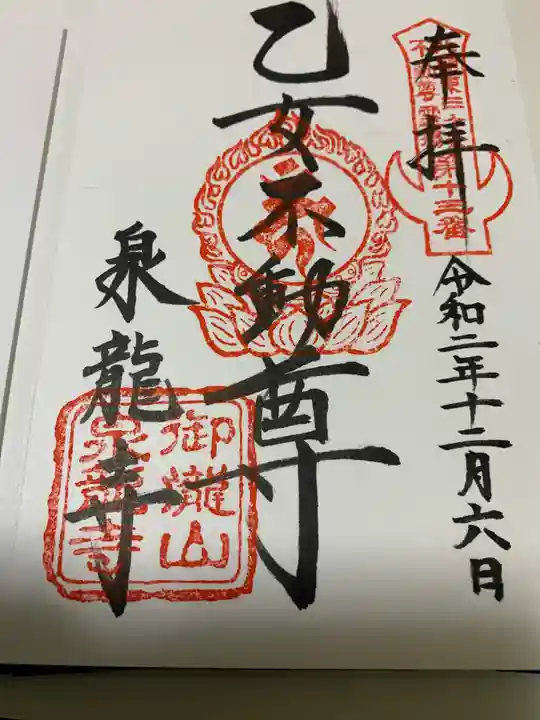 奉拝
令和二年十二月六日
乙女不動尊
泉龍寺
御瀧山
泉龍寺